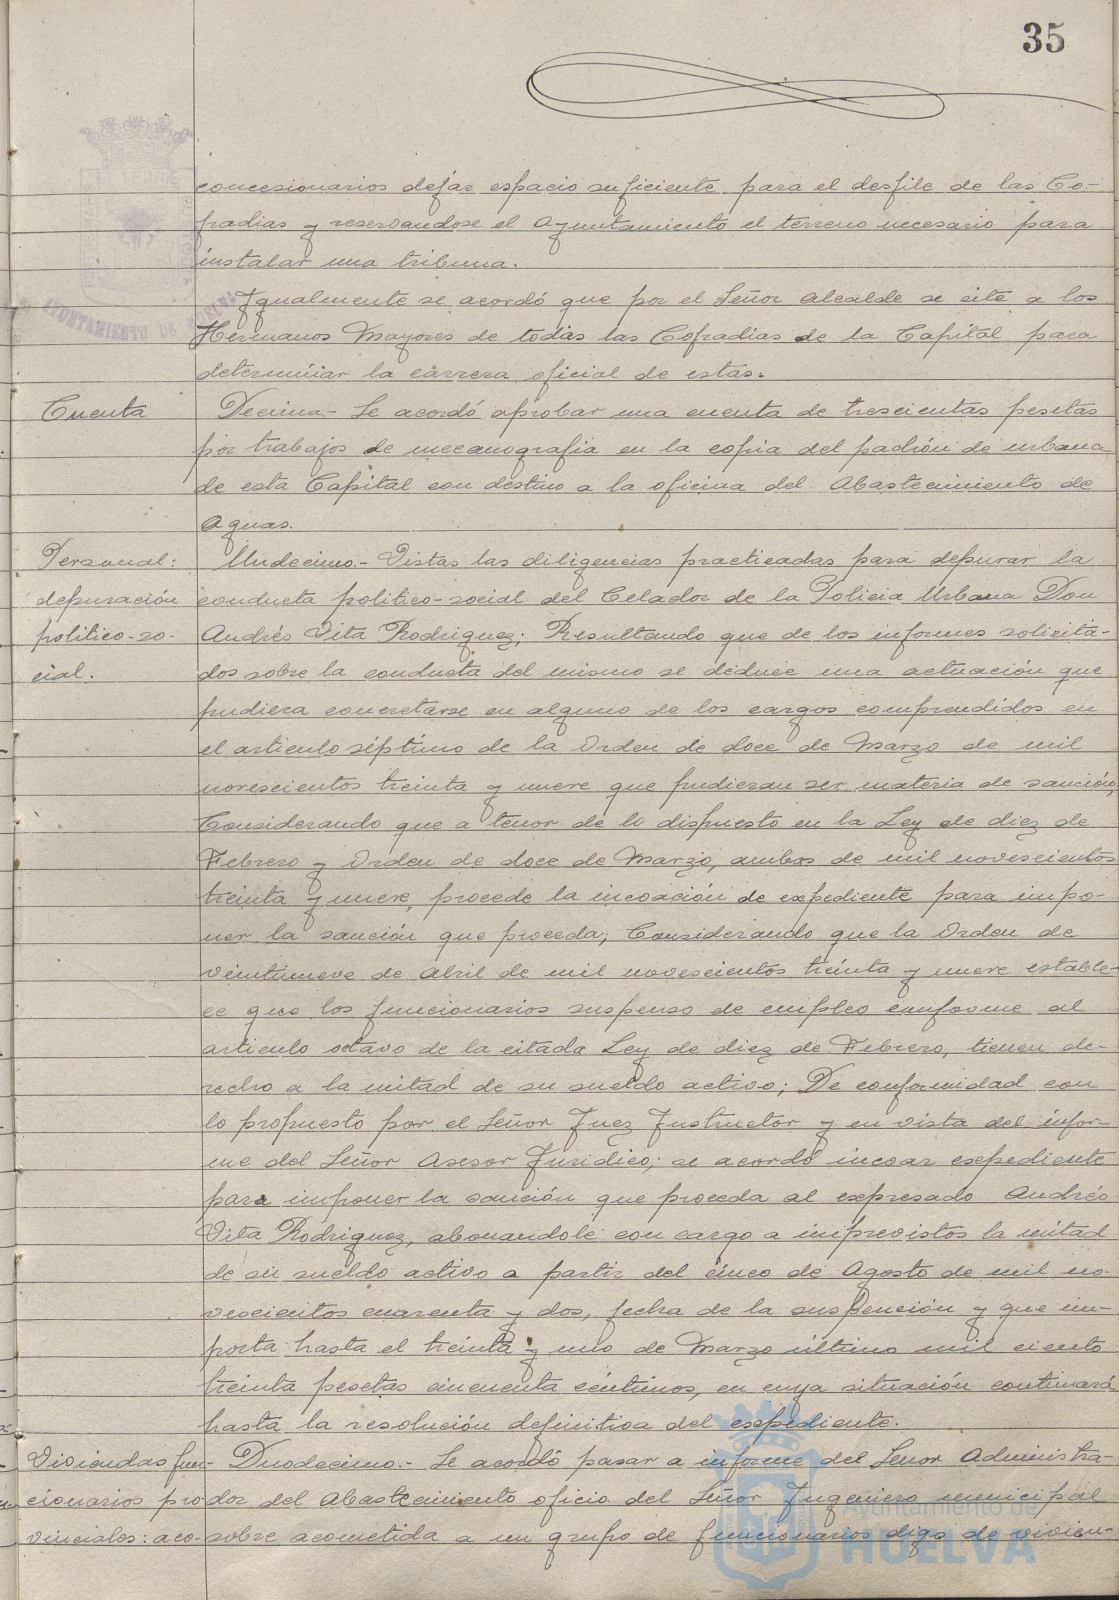 35
concesionarios dejar espacio suficiente para el desfile de las Co-
fradias y reservandose el Ayuntamiento el terreno necesario para
instalar una tribuna.
Igualmente se acordó que por el Señor Alcalde se cite a los
Hermanos Mayores de todas las Cofradias de la Capital para
determinar la carrera oficial de estas.
Cuenta Decima.- Se acordó aprobar una cuenta de trescientas pesetas
por trabajos de mecanografia en la copia del padrón de urbana
de esta Capital con destino a la oficina del Abastecimiento de
Aguas.
Personal: Undecimo.- Vistas las diligencias practicadas para depurar la
depuración conducta politico-social del Celador de la Policia Urbana Don
politico-so- Andrés Vita Rodriguez; Resultando que de los informes solicita-
cial. dos sobre la conducta del mismo se deduce una actuación que
pudiera concretarse en alguno de los cargos comprendidos en
el articulo séptimo de la Orden de doce de Marzo de mil
novescientos treinta y nueve que pudieran ser materia de sanción;
Considerando que a tenor de lo dispuesto en la Ley de diez de
Febrero y Orden de doce de Marzo, ambos de mil novescientos
treinta y nueve, procede la incoación de expediente para impo-
ner la sanción que proceda; Considerando que la Orden de
veintinueve de Abril de mil novescientos treinta y nueve estable-
ce que los funcionarios suspenso de empleo conforme al
articulo octavo de la citada Ley de diez de Febrero, tienen de-
recho a la mitad de su sueldo activo; De conformidad con
lo propuesto por el Señor Juez Instructor y en vista del infor-
me del Señor Asesor Juridico; se acordó incoar expediente
para imponer la sanción que proceda al expresado Andrés
Vita Rodriguez, abonandole con cargo a imprevistos la mitad
de su sueldo activo a partir del cinco de Agosto de mil no-
vescientos cuarenta y dos, fecha de la suspención y que im-
porta hasta el treinta y uno de Marzo último mil ciento
treinta pesetas cincuenta céntimos, en cuya situación continuará
hasta la resolución definitiva del expediente.
Viviendas fun- Duodecimo.- Se acordó pasar a informe del Señor Administra-
cionarios pro- dor del Abastecimiento oficio del Señor Ingeniero municipal
vinciales: aco- sobre acometida a un grupo de funcionarios digo de vivien-
AYUNTAMIENTO DE HUELVA
Ayuntamiento de
HUELVA